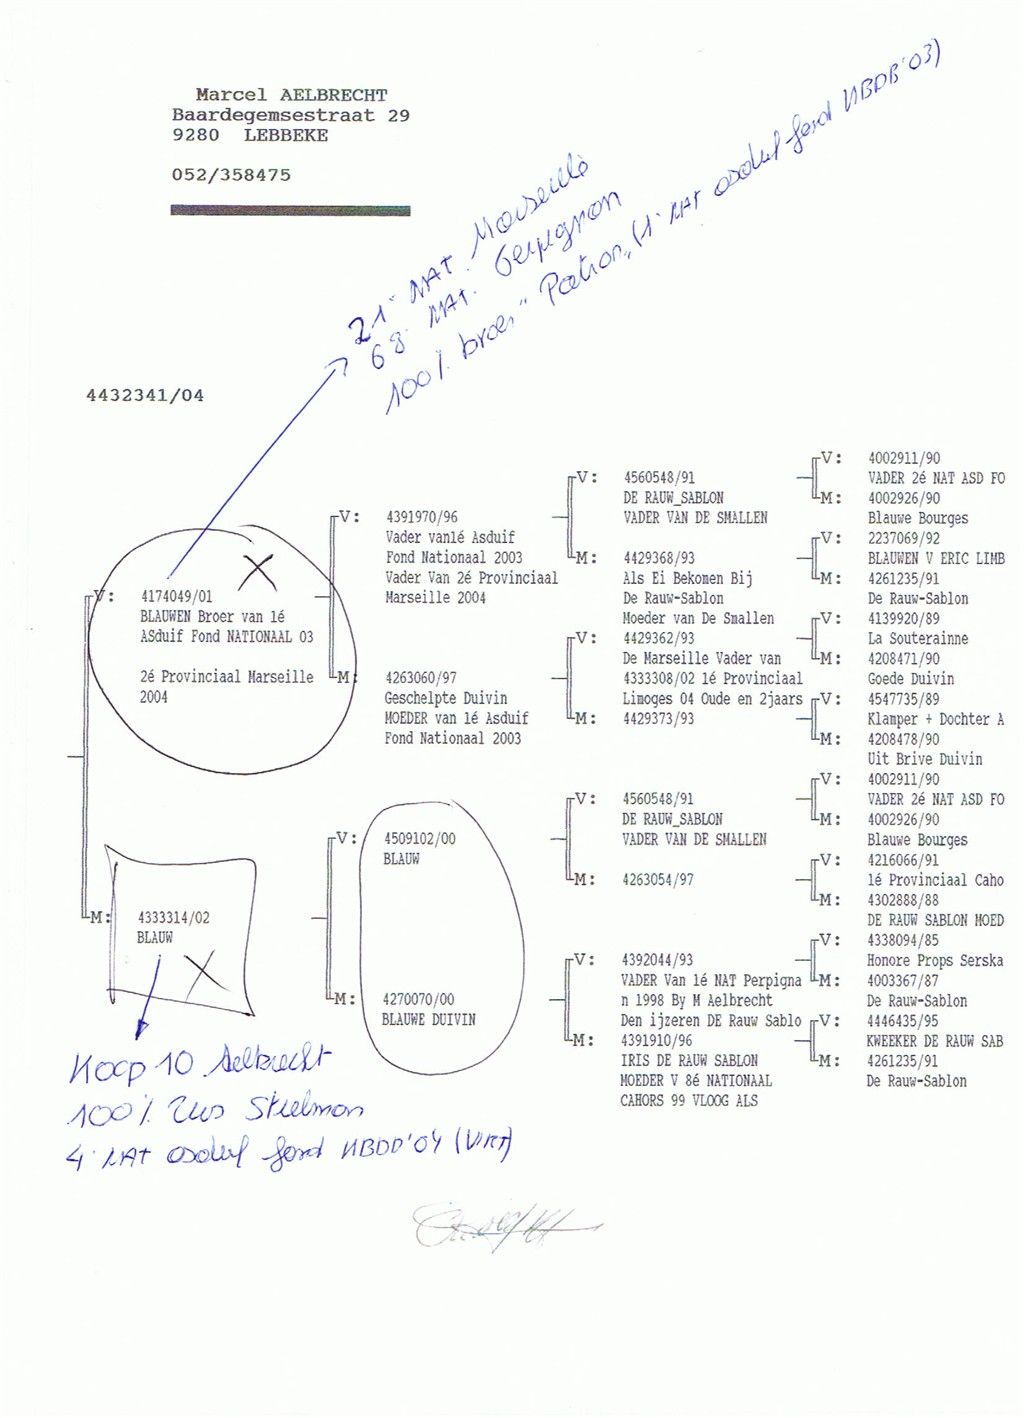 Marcel AELBRECHT
Baardegemsestraat 29
9280 LEBBEKE
052/358475
21° NAT. Marseille
68. NAT. Perpignan
100% broer "Patron" (1° NAT asduif fond KBDB'03)
4432341/04
V: 4174049/01
BLAUWEN Broer van 1é
ASduif Fond NATIONAAL 03
2é Provinciaal Marseille
2004
M: 4333314/02
BLAUW
V: 4391970/96
Vader van1é Asduif
Fond Nationaal 2003
Vader Van 2é Provinciaal
Marseille 2004
M: 4263060/97
Geschelpte Duivin
MOEDER van 1é Asduif
Fond Nationaal 2003
V: 4509102/00
BLAUW
M: 4270070/00
BLAUWE DUIVIN
V: 4560548/91
DE RAUW_SABLON
VADER VAN DE SMALLEN
M: 4429368/93
Als Ei Bekomen Bij
De Rauw-Sablon
Moeder van De Smallen
V: 4429362/93
De Marseille Vader van
4333308/02 1é Provinciaal
Limoges 04 Oude en 2jaars
M: 4429373/93
V: 4560548/91
DE RAUW_SABLON
VADER VAN DE SMALLEN
M: 4263054/97
V: 4392044/93
VADER Van 1é NAT Perpigna
n 1998 By M Aelbrecht
Den ijzeren DE Rauw Sablo
M: 4391910/96
IRIS DE RAUW SABLON
MOEDER V 8é NATIONAAL
CAHORS 99 VLOOG ALS
V: 4002911/90
VADER 2é NAT ASD FO
M: 4002926/90
Blauwe Bourges
V: 2237069/92
BLAUWEN V ERIC LIMB
M: 4261235/91
De Rauw-Sablon
V: 4139920/89
La Souterainne
M: 4208471/90
Goede Duivin
V: 4547735/89
Klamper + Dochter A
M: 4208478/90
Uit Brive Duivin
V: 4002911/90
VADER 2é NAT ASD FO
M: 4002926/90
Blauwe Bourges
V: 4216066/91
1é Provinciaal Caho
M: 4302888/88
DE RAUW SABLON MOED
V: 4338094/85
Honore Props Serska
M: 4003367/87
De Rauw-Sablon
V: 4446435/95
KWEEKER DE RAUW SAB
M: 4261235/91
De Rauw-Sablon
Koop 10 Aelbrecht
100% Zus Steelman
4° NAT asduif fond KBDB'04 (VRT)